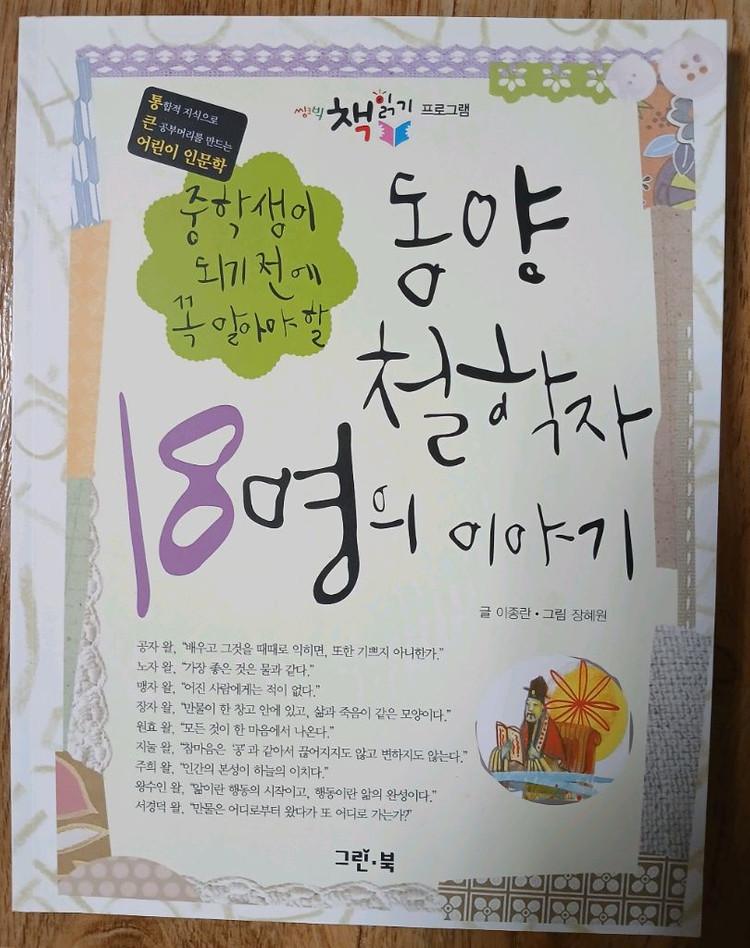 통합적 지식으로
큰 공부머리를 만드는
어린이 인문학
씽크빅 책읽기 프로그램
중학생이
되기 전에
꼭 알아야 할
동양
철학자
18명의 이야기
글 이종란 • 그림 장혜원
공자 왈, “배우고 그것을 때때로 익히면, 또한 기쁘지 아니한가.”
노자 왈, “가장 좋은 것은 물과 같다.”
맹자 왈, “어진 사람에게는 적이 없다.”
장자 왈, “만물이 한 창고 안에 있고, 삶과 죽음이 같은 모양이다.”
원효 왈, “모든 것이 한 마음에서 나온다.”
지눌 왈, “참마음은 ‘공’과 같아서 끊어지지도 않고 변하지도 않는다.”
주희 왈, “인간의 본성이 하늘의 이치다.”
왕수인 왈, “앎이란 행동의 시작이고, 행동이란 앎의 완성이다.”
서경덕 왈, “만물은 어디로부터 왔다가 또 어디로 가는가?”
그린·북